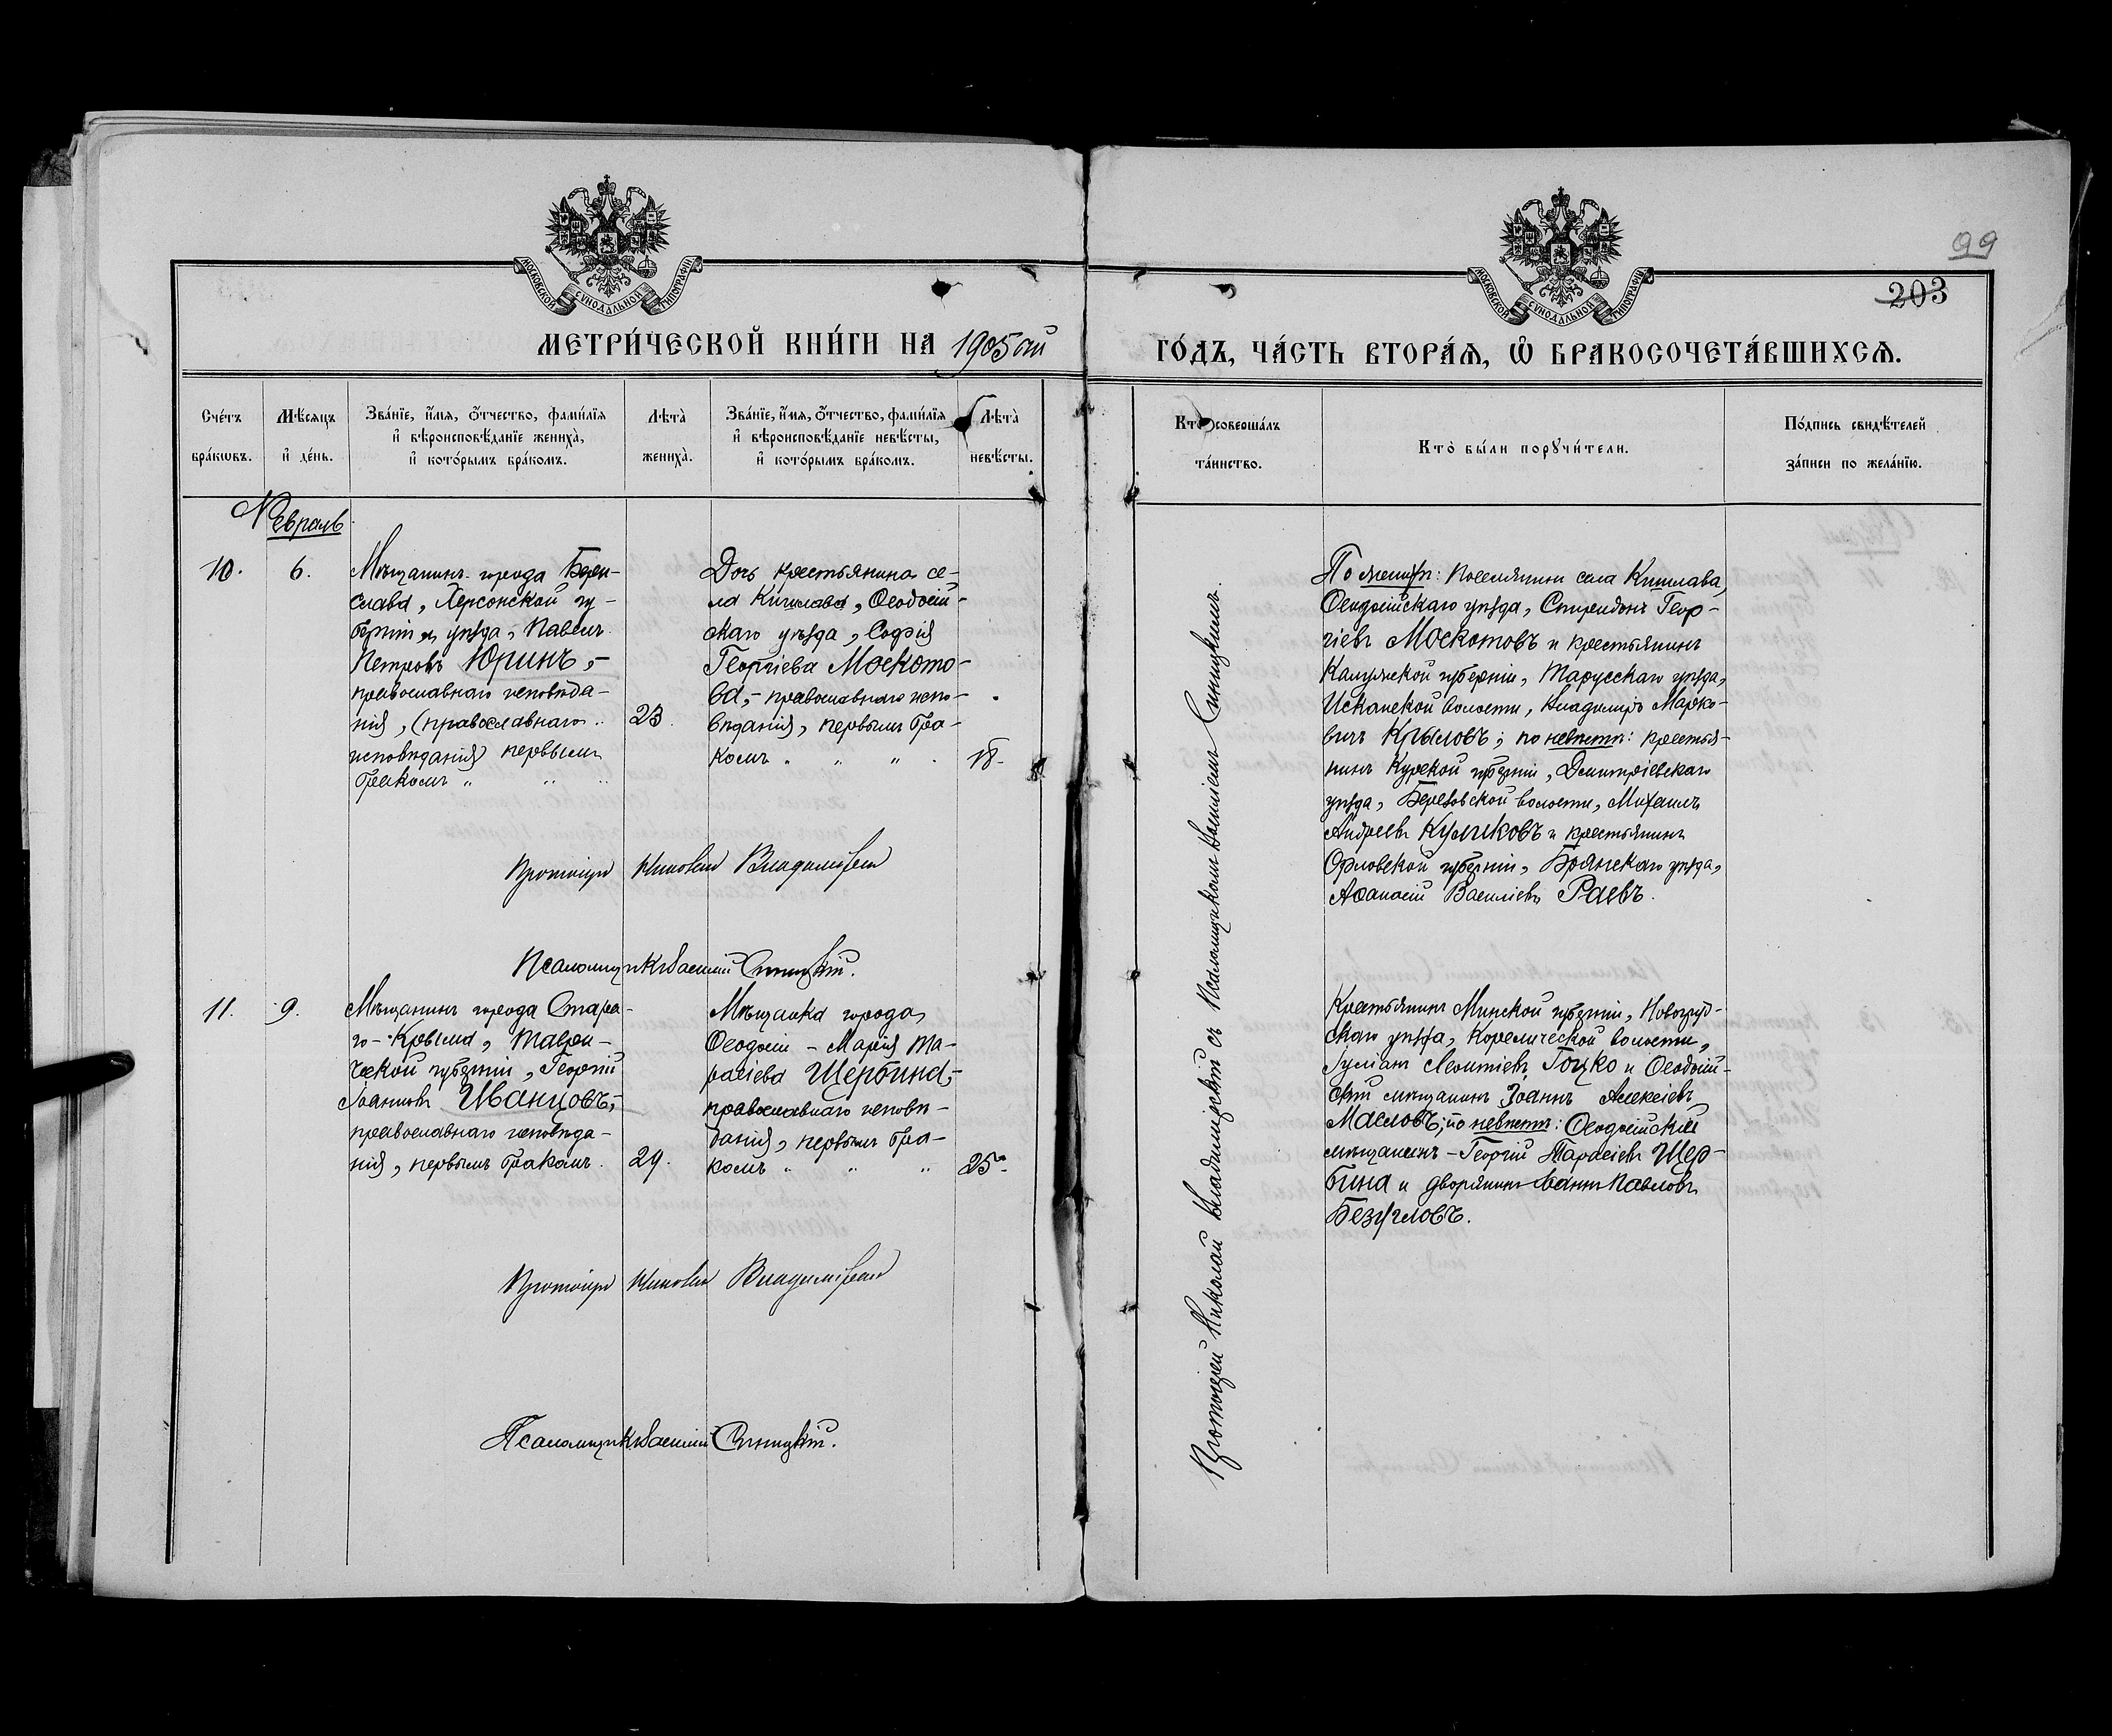 99
203
МОСКОВСКОЙ СѴНОДАЛЬНОЙ ТИПОГРАФІИ
МОСКОВСКОЙ СѴНОДАЛЬНОЙ ТИПОГРАФІИ
МЕТРИ́ЧЕСКОЙ КНИ́ГИ НА 1905 ой
ГО́ДЪ, ЧА́СТЬ ВТОРА́Ѧ, Ѡ҆ БРАКОСОЧЕТА́ВШИХСѦ.
Сче́тъ бра́кѡвъ.
Мѣ́сяцъ и҆ де́нь.
Зва́нїе, и҆́мя, ѻ҆́тчество, фами́лїя и҆ вѣроисповѣ́данїе жениха̀, и҆ кото́рымъ бра́комъ.
Лѣта̀ жениха̀.
Зва́нїе, и҆́мя, ѻ҆́тчество, фами́лїя и҆ вѣроисповѣ́данїе невѣ́сты, и҆ кото́рымъ бра́комъ.
Лѣта̀ невѣ́сты.
Кто̀ соверша́лъ та́инство.
Кто̀ бы́ли порꙋчи́тели.
По́дпись свидѣ́телей за́писи по жела́нїю.
Февраль
10.
6.
Мѣщанинъ города Бери-
слава, Херсонской гу-
берніи и уѣзда, Павелъ
Петровъ Юринъ,-
православнаго исповѣда-
нія, (православнаго
исповѣданія) первымъ
бракомъ " " "
23.
Дочь крестьянина се-
ла Кишлава, Ѳеодосій-
скаго уѣзда, Софія
Георгіева Моското-
ва,- православнаго испо-
вѣданія, первымъ бра-
комъ " " "
18.
Протоіерей Николай Владимірскій съ Псаломщикомъ Василіемъ Синицкимъ.
По женихѣ: поселянинъ села Кишлава,
Ѳеодосійскаго уѣзда, Спиридонъ Геор-
гіевъ Москотовъ и крестьянинъ
Калужской губерніи, Тарусскаго уѣзда,
Исканской волости, Владиміръ Марко-
вичъ Крыловъ; по невѣстѣ: крестья-
нинъ Курской губерніи, Дмитріевскаго
уѣзда, Березовской волости, Михаилъ
Андреевъ Куликовъ и крестьянинъ
Орловской губерніи, Брянскаго уѣзда,
Аѳанасій Василіевъ Раевъ.
Протоіерей Николай Владимірскій
Псаломщикъ Василій Синицкій.
11.
9.
Мѣщанинъ города Стара-
го-Крыма, Таври-
ческой губерніи, Георгій
Іоанновъ Иванцовъ,-
православнаго исповѣда-
нія, первымъ бракомъ.
29.
Мѣщанка города
Ѳеодосіи - Марія Та-
расіева Щербина,-
православнаго исповѣ-
данія, первымъ бра-
комъ " " "
25.
Крестьянинъ Минской губерніи, Новогруд-
скаго уѣзда, Кореличской волости,
Іуліанъ Леонтіевъ Гоцко и Ѳеодосій-
скій мѣщанинъ Іоаннъ Алексіевъ
Масловъ; по невѣстѣ: Ѳеодосійскій
мѣщанинъ - Георгій Тарасіевъ Щер-
бина и дворянинъ Іоаннъ Павловъ
Безугловъ.
Протоіерей Николай Владимірскій
Псаломщикъ Василій Синицкій.